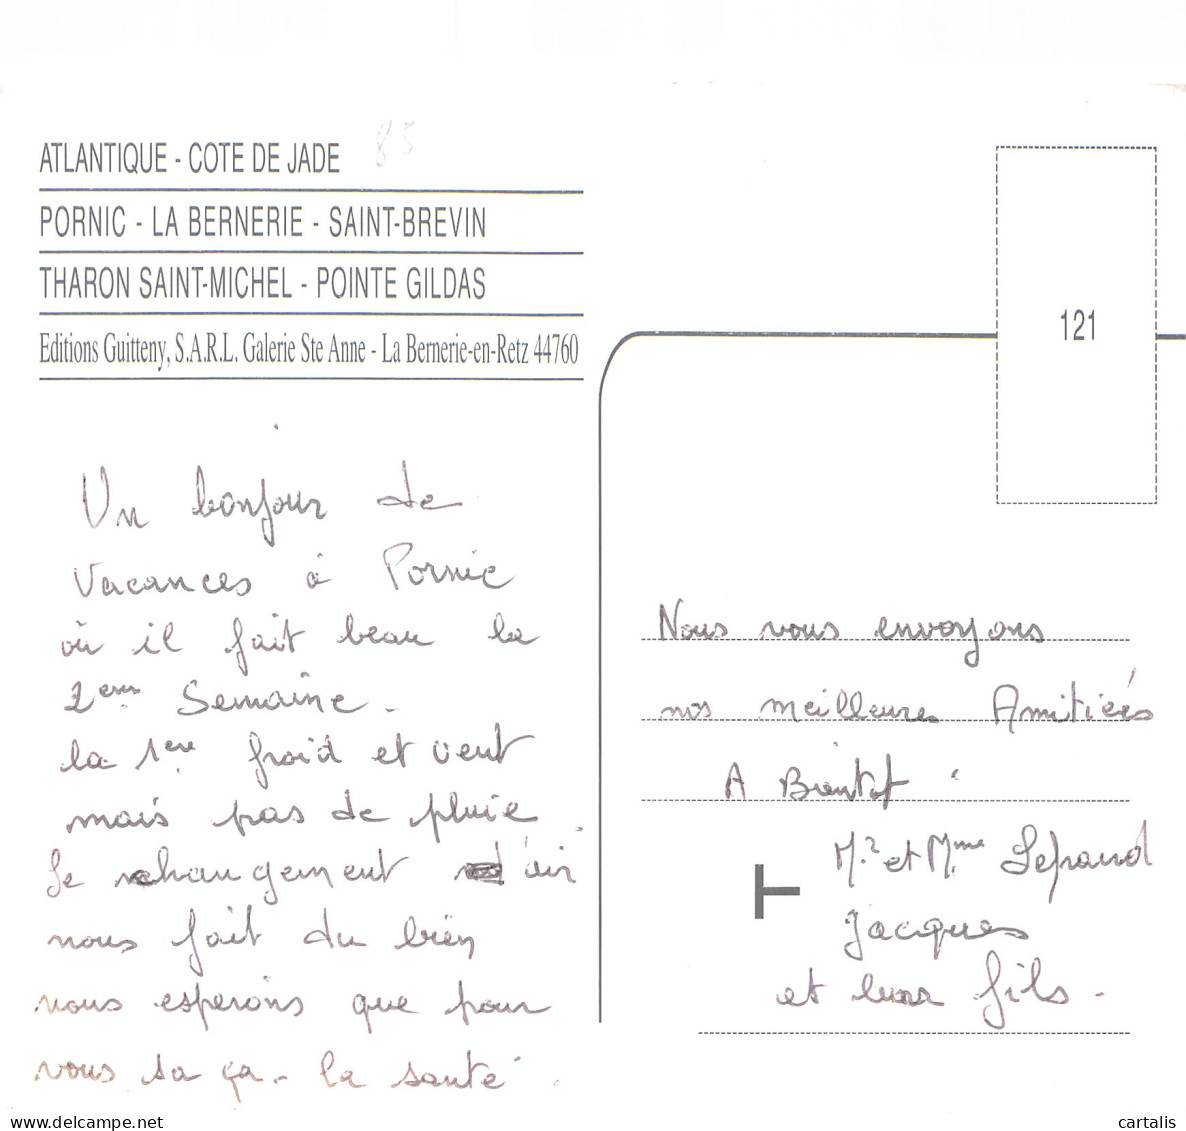 ATLANTIQUE - COTE DE JADE
85
PORNIC - LA BERNERIE - SAINT-BREVIN
THARON SAINT-MICHEL - POINTE GILDAS
Editions Guitteny, S.A.R.L. Galerie Ste Anne - La Bernerie-en-Retz 44760
121
Un bonjour de
Vacances à Pornic
où il fait beau la
2em Semaine -
la 1ère froid et vent
mais pas de pluie.
Le changement d'air
nous fait du bien
nous esperons que pour
vous sa ça - la santé.
Nous vous envoyons
nos meilleures Amitiées
A Bientot.
Mr et Mme
Jacques
et leurs fils.
cartalis
www.delcampe.net